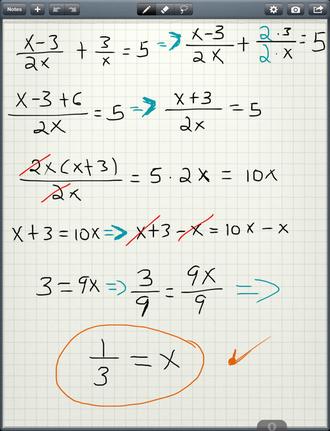 Notes
x-3/2x + 3/x = 5 => x-3/2x + 2·3/2·x = 5
x-3+6/2x = 5 => x+3/2x = 5
2x(x+3)/2x = 5·2x = 10x
x+3 = 10x => x+3-x = 10x-x
3 = 9x => 3/9 = 9x/9 =>
1/3 = x ✓